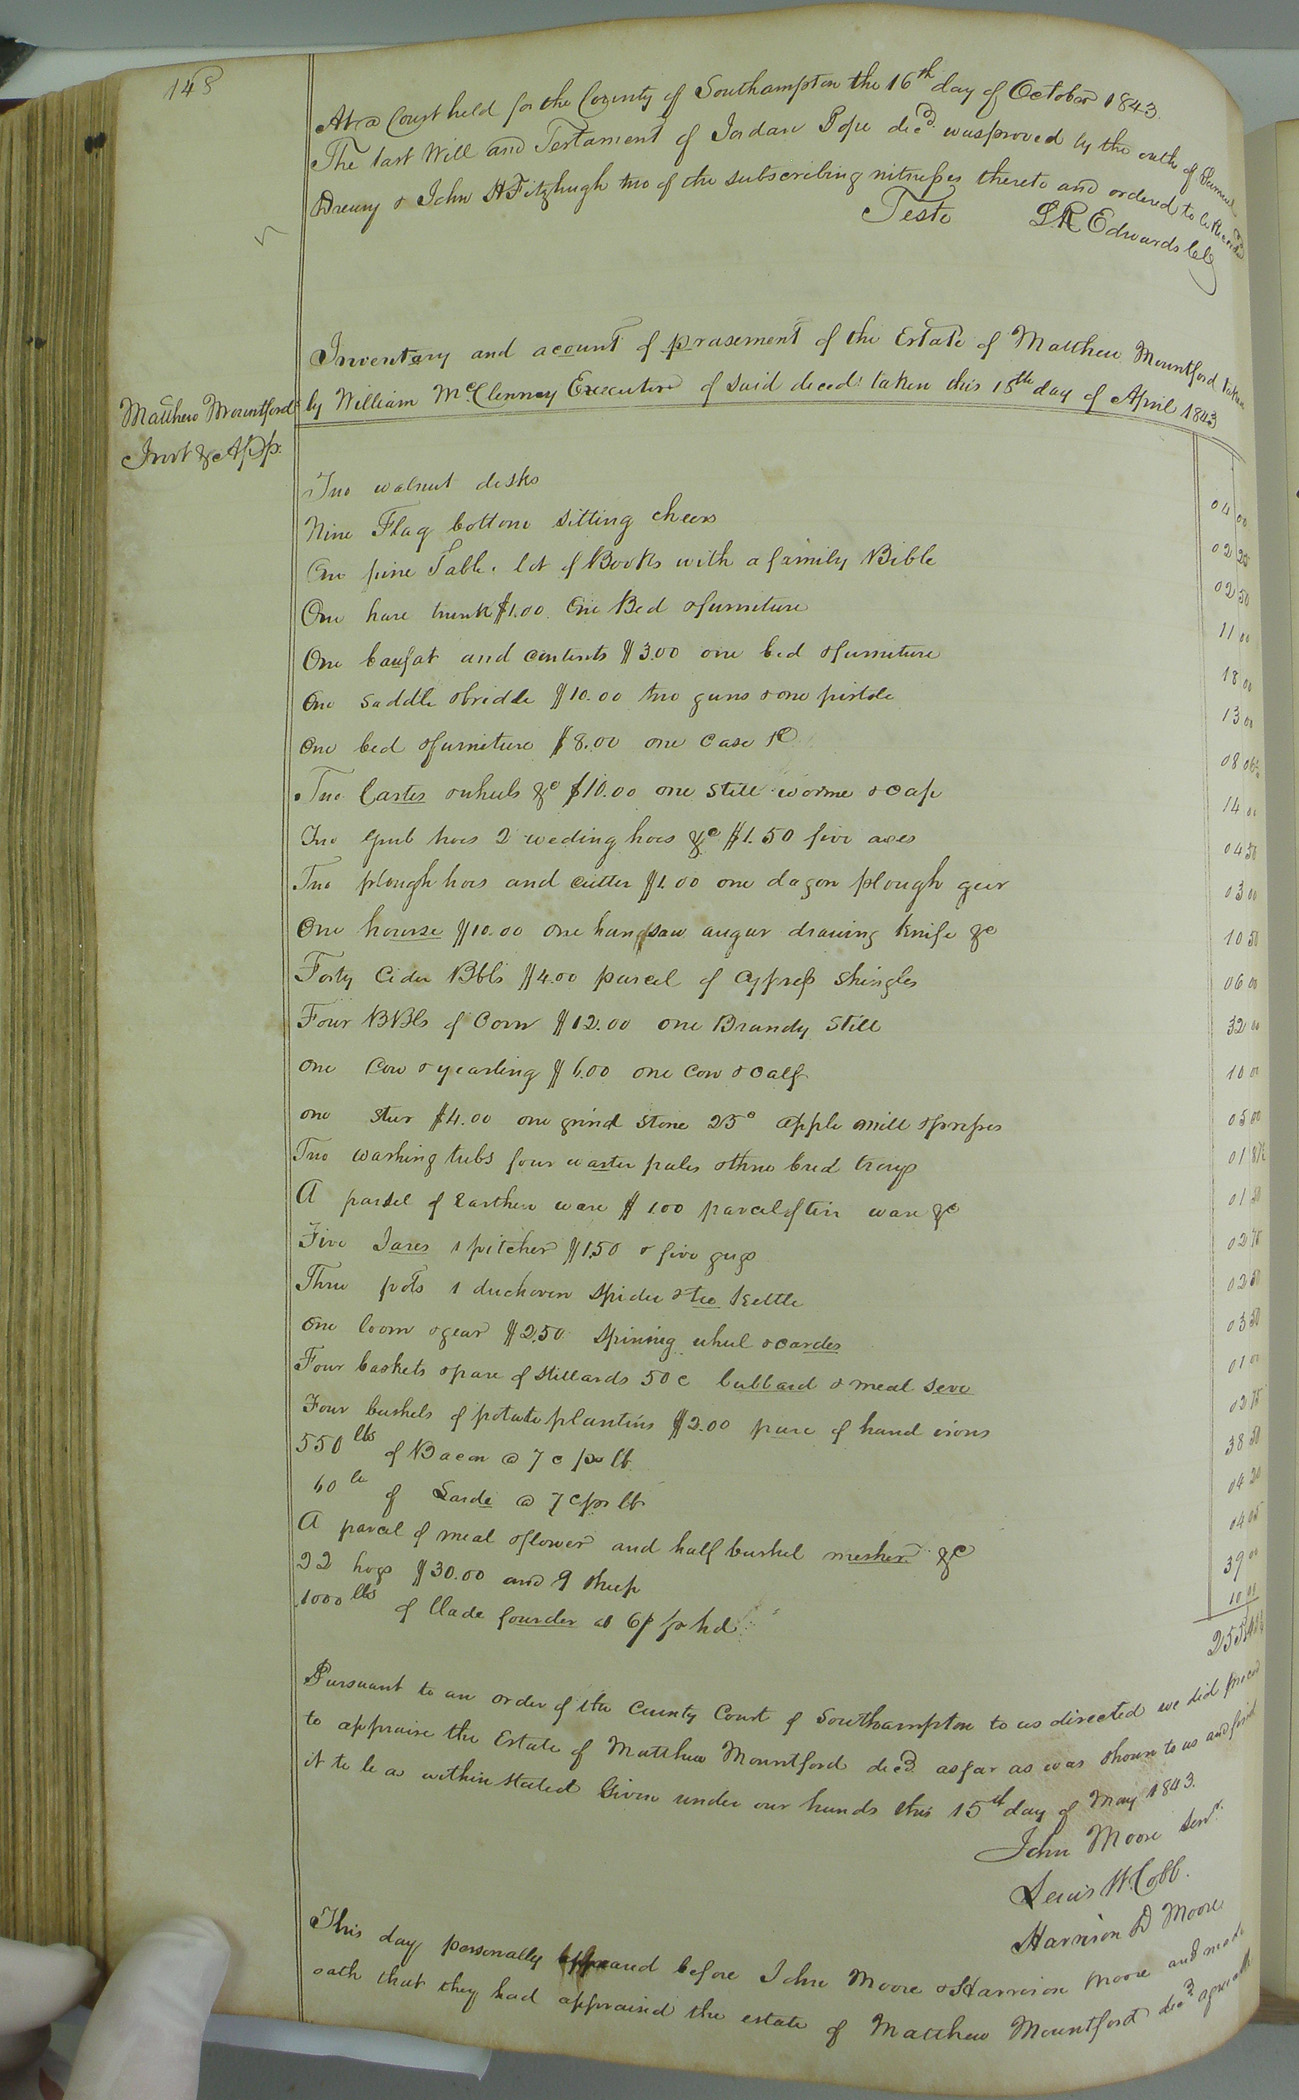 148
At a Court held for the County of Southampton the 16th day of October 1843.
The last Will and Testament of Jordan Pope decd. was proved by the oaths of Samuel
Drewry & John H Fitzhugh two of the subscribing witnesses thereto and ordered to be Recorded
Teste L R Edwards Clk
Matthew Mountford
Invt & App.
Inventary and acount of prasement of the Estate of Matthew Mountford taken
by William McClenney Executor of said decd: taken this 18th day of April 1843
Two walnut desks 04 00
Nine Flag bottom sitting cheers 02 25
One pine Table, lot of Books with a family Bible 02 50
One hare trunk $1.00 One Bed & furniture 11 00
One baufat and contents $3.00 one bed & furniture 18 00
One saddle & bridle $10.00 two guns & one pistole 13 00
One bed & furniture $8.00 one case 08
Two Cartes & wheels &c $10.00 one still worme & cap 14 00
Two grub hoes 2 weding hoes &c $1.50 five axes 04 50
Two plough hoes and cutter $1.00 one dagon plough geer 03 00
One hourse $10.00 one handsaw augur drawing knife &c 10 50
Forty Cider Bbls $4.00 parcel of Cypress shingles 06 00
Four BBls of Corn $12.00 one Brandy Still 32 00
one Cow & yearling $6.00 one Cow & Calf 10 00
one steer $4.00 one grind stone 25c apple mill & presses 05 00
Two washing tubs four waster pales & three bred trays 01
A parsel of Earthen ware $1.00 parcel of tin ware &c 01 50
Five Jares 1 pitcher $1.50 & five gugs 02 75
Three pots 1 duchoven spider & tea kettle 02 50
One loom & gear $2.50 spining wheel & cardes 03 50
Four baskets & pare of stillards 50c Cubbard & meal seve 01 00
Four bushels of potato plantins $2.00 pare of hand irons 02 75
550 lbs of Bacon @ 7c pr lb 38 50
60 lb of Larde @ 7c pr lb 04 20
A parcel of meal & flower and half bushel mesher &c 04 05
22 hogs $30.00 and 9 sheep 39 00
1000 lbs of Blade founder at 6/ pr hd 10 00
Pursuant to an order of the County Court of Southampton to us directed we did proceed
to appraise the Estate of Matthew Mountford decd as far as was shown to us and find
it to be as within stated Given under our hands this 15th day of May 1843.
John Moore Senr.
Lewis W. Cobb.
Harrison D Moore
This day personally appeared before John Moore & Harrison Moore and made
oath that they had appraised the estate of Matthew Mountford decd agreeable